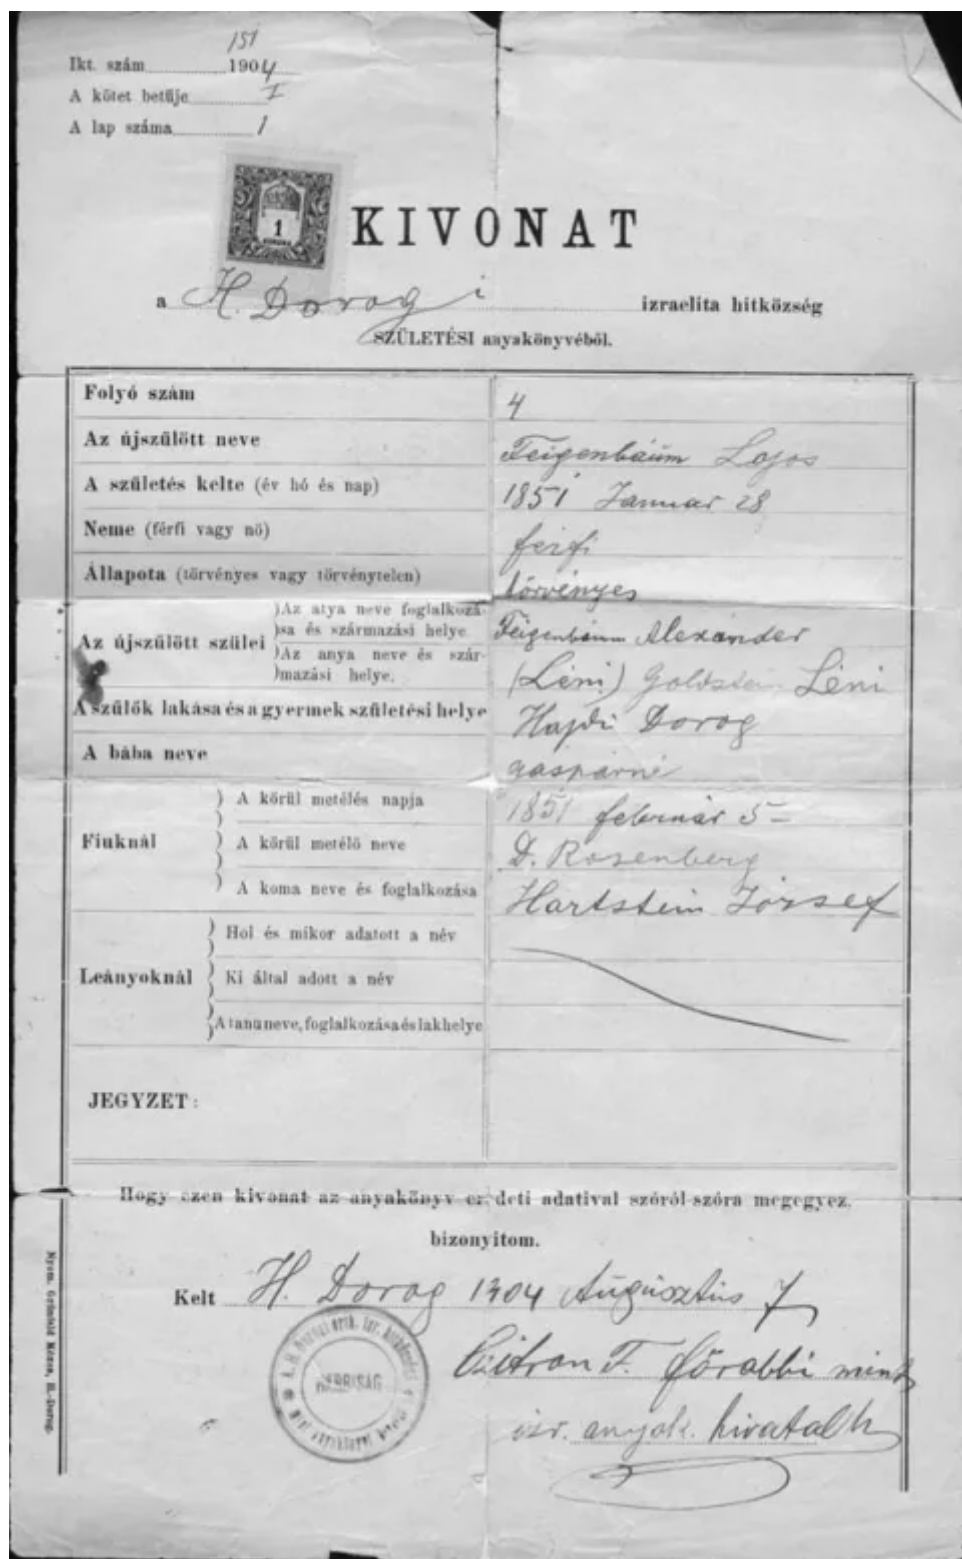 151
Ikt. szám 1904
A kötet betűje I
A lap száma 1
1
KIVONAT
a H. Dorog i izraelita hitközség
SZÜLETÉSI anyakönyvéből.
Folyó szám 4
Az újszülött neve Feigenbaum Lajos
A születés kelte (év hó és nap) 1851 Januar 28
Neme (férfi vagy nö) férfi
Állapota (törvényes vagy törvénytelen) törvényes
Az újszülött szülei
Az atya neve foglalkozá-
sa és származási helye Feigenbaum Alexánder
Az anya neve és szár-
mazási helye. (Léni) Goldstein Léni
A szülők lakása és a gyermek születési helye Hajdú Dorog
A bába neve gaspárné
Fiuknál
A körül metélés napja 1851 február 5-
A körül metélő neve D. Rosenberg
A koma neve és foglalkozása Hartstein József
Leányoknál
Hol és mikor adatott a név
Ki által adott a név
A tanu neve, foglalkozása és lakhelye
JEGYZET:
Hogy ezen kivonat az anyakönyv eredeti adatival szóról-szóra megegyez,
bizonyitom.
Kelt H. Dorog 1904 Augúsztús 7
Czitron F. főrabbi mint
izr. anyak. hivatalh
Nyom. Grünfeld Mózes, H.-Dorog.